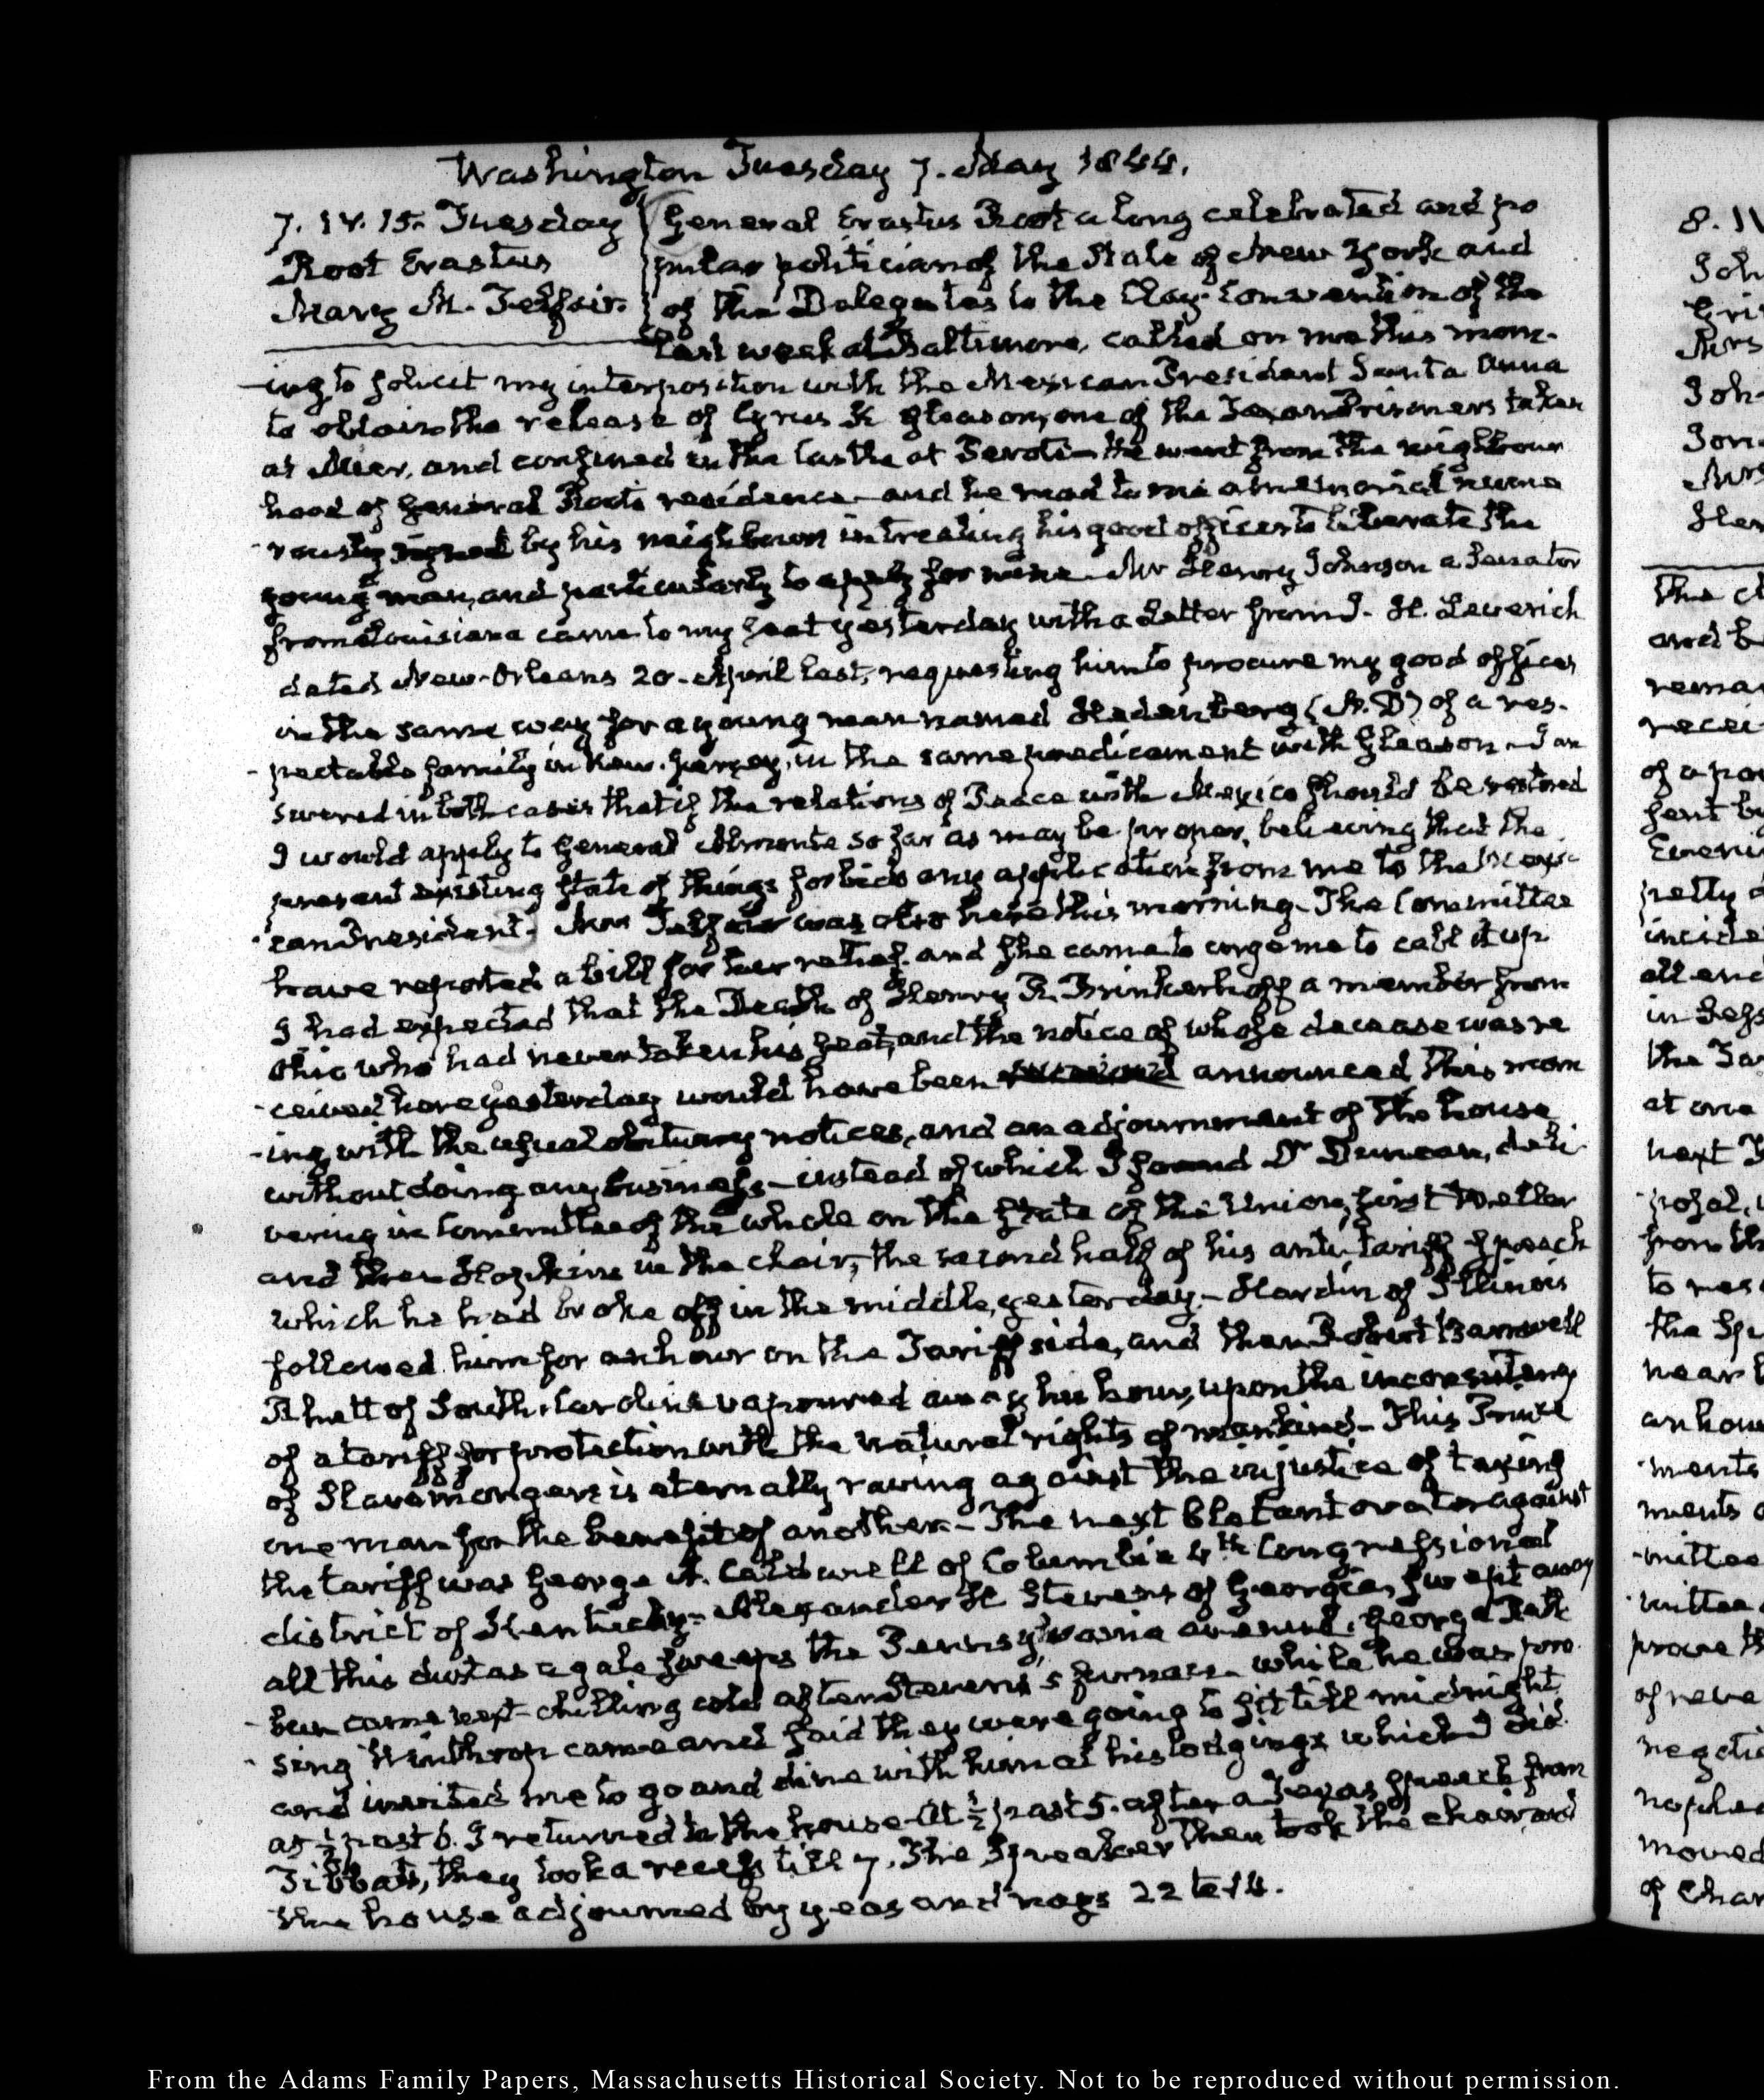 Washington Tuesday 7. May 1844.
7. IV. 15. Tuesday
Root Erastus
Mary M. Telfair.
General Erastus Root a long celebrated and po
pular politician of the State of New York and
of the Delegates to the Clay-Convention of the
last week at Baltimore, called on me this morn-
-ing to solicit my interposition with the Mexican President Santa Anna
to obtain the release of Cyrus K Gleason, one of the Texan Prisoners taken
at Mier, and confined in the Castle at Perote- He went from the neighbour
hood of General Root's residence- and he read to me a memorial nume
-rously signed by his neighbours intreating his good offices to liberate the
young man, and particularly to apply for mine- Mr Henry Johnson a Senator
from Louisiana came to my seat yesterday with a Letter from J. H. Leverich
dated New-Orleans 20. April last, requesting him to procure my good offices
in the same way for a young man named Hedenberg (M. D) of a res-
-pectable family in New-Jersey, in the same predicament with Gleason- I an
swered in both cases that if the relations of Peace with Mexico should be restored
I would apply to General Almonte so far as may be proper, believing that the
present existing state of things forbids any application from me to the Mexi-
-can President. Mrs Telfair was also here this morning- The Committee
have reported a bill for her relief, and she came to urge me to call it up
I had expected that the Death of Henry R. Brinkerhoff a member from
Ohio who had never taken his seat, and the notice of whose decease was re
-ceived here yesterday would have been announced this morn
-ing, with the usual obituary notices, and an adjournment of the house
without doing any business- instead of which I found Dr Duncan, deli
vering in Committee of the whole on the State of the Union, first Weller
and then Hopkins in the chair, the second half of his anti-tariff speech
which he had broke off in the middle, yesterday- Hardin of Illinois
followed him for an hour on the Tariff side, and then Robert Barnwell
Rhett of South-Carolina vapoured away his hour, upon the inconsistency
of a tariff for protection with the natural rights of mankind- This Prince
of Slavemongers is eternally raving against the injustice of taxing
one man for the benefit of another- The next blatant orator against
the tariff was George A. Caldwell of Columbia 4th Congressional
district of Kentucky- Alexander H Stevens of Georgia, swept away
all this dust as a gale sweeps the Pennsylvania avenue. George Rath
-bun came next- chilling cold after Stevens's furnace- while he was pro
-sing Winthrop came and said they were going to sit till midnight
and invited me to go and dine with him at his lodgings which I did.
at ½ past 6. I returned to the house- At ½ past 5. after a Texas speech from
Tibbats, they took a recess till 7. The Speaker then took the chair, and
the house adjourned by yeas and nays 22 to 14.
8. IV
Joh
Gri
Mrs
Joh
Jon
Mrs
The c
and b
rema
recei
of a po
sent b
pretty
incide
all end
in Sess
at one
next
from th
to mes
the Spe
near
an hou
ments
ments
-mittee
-mittee
prove th
of reve
negotia
no plea
moved
of Char
From the Adams Family Papers, Massachusetts Historical Society. Not to be reproduced without permission.